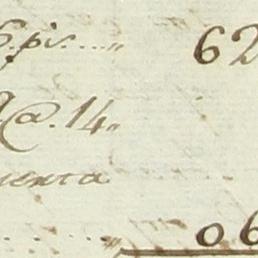 6 ps. .... " 62
@. 14 "
uenta
..... " 06